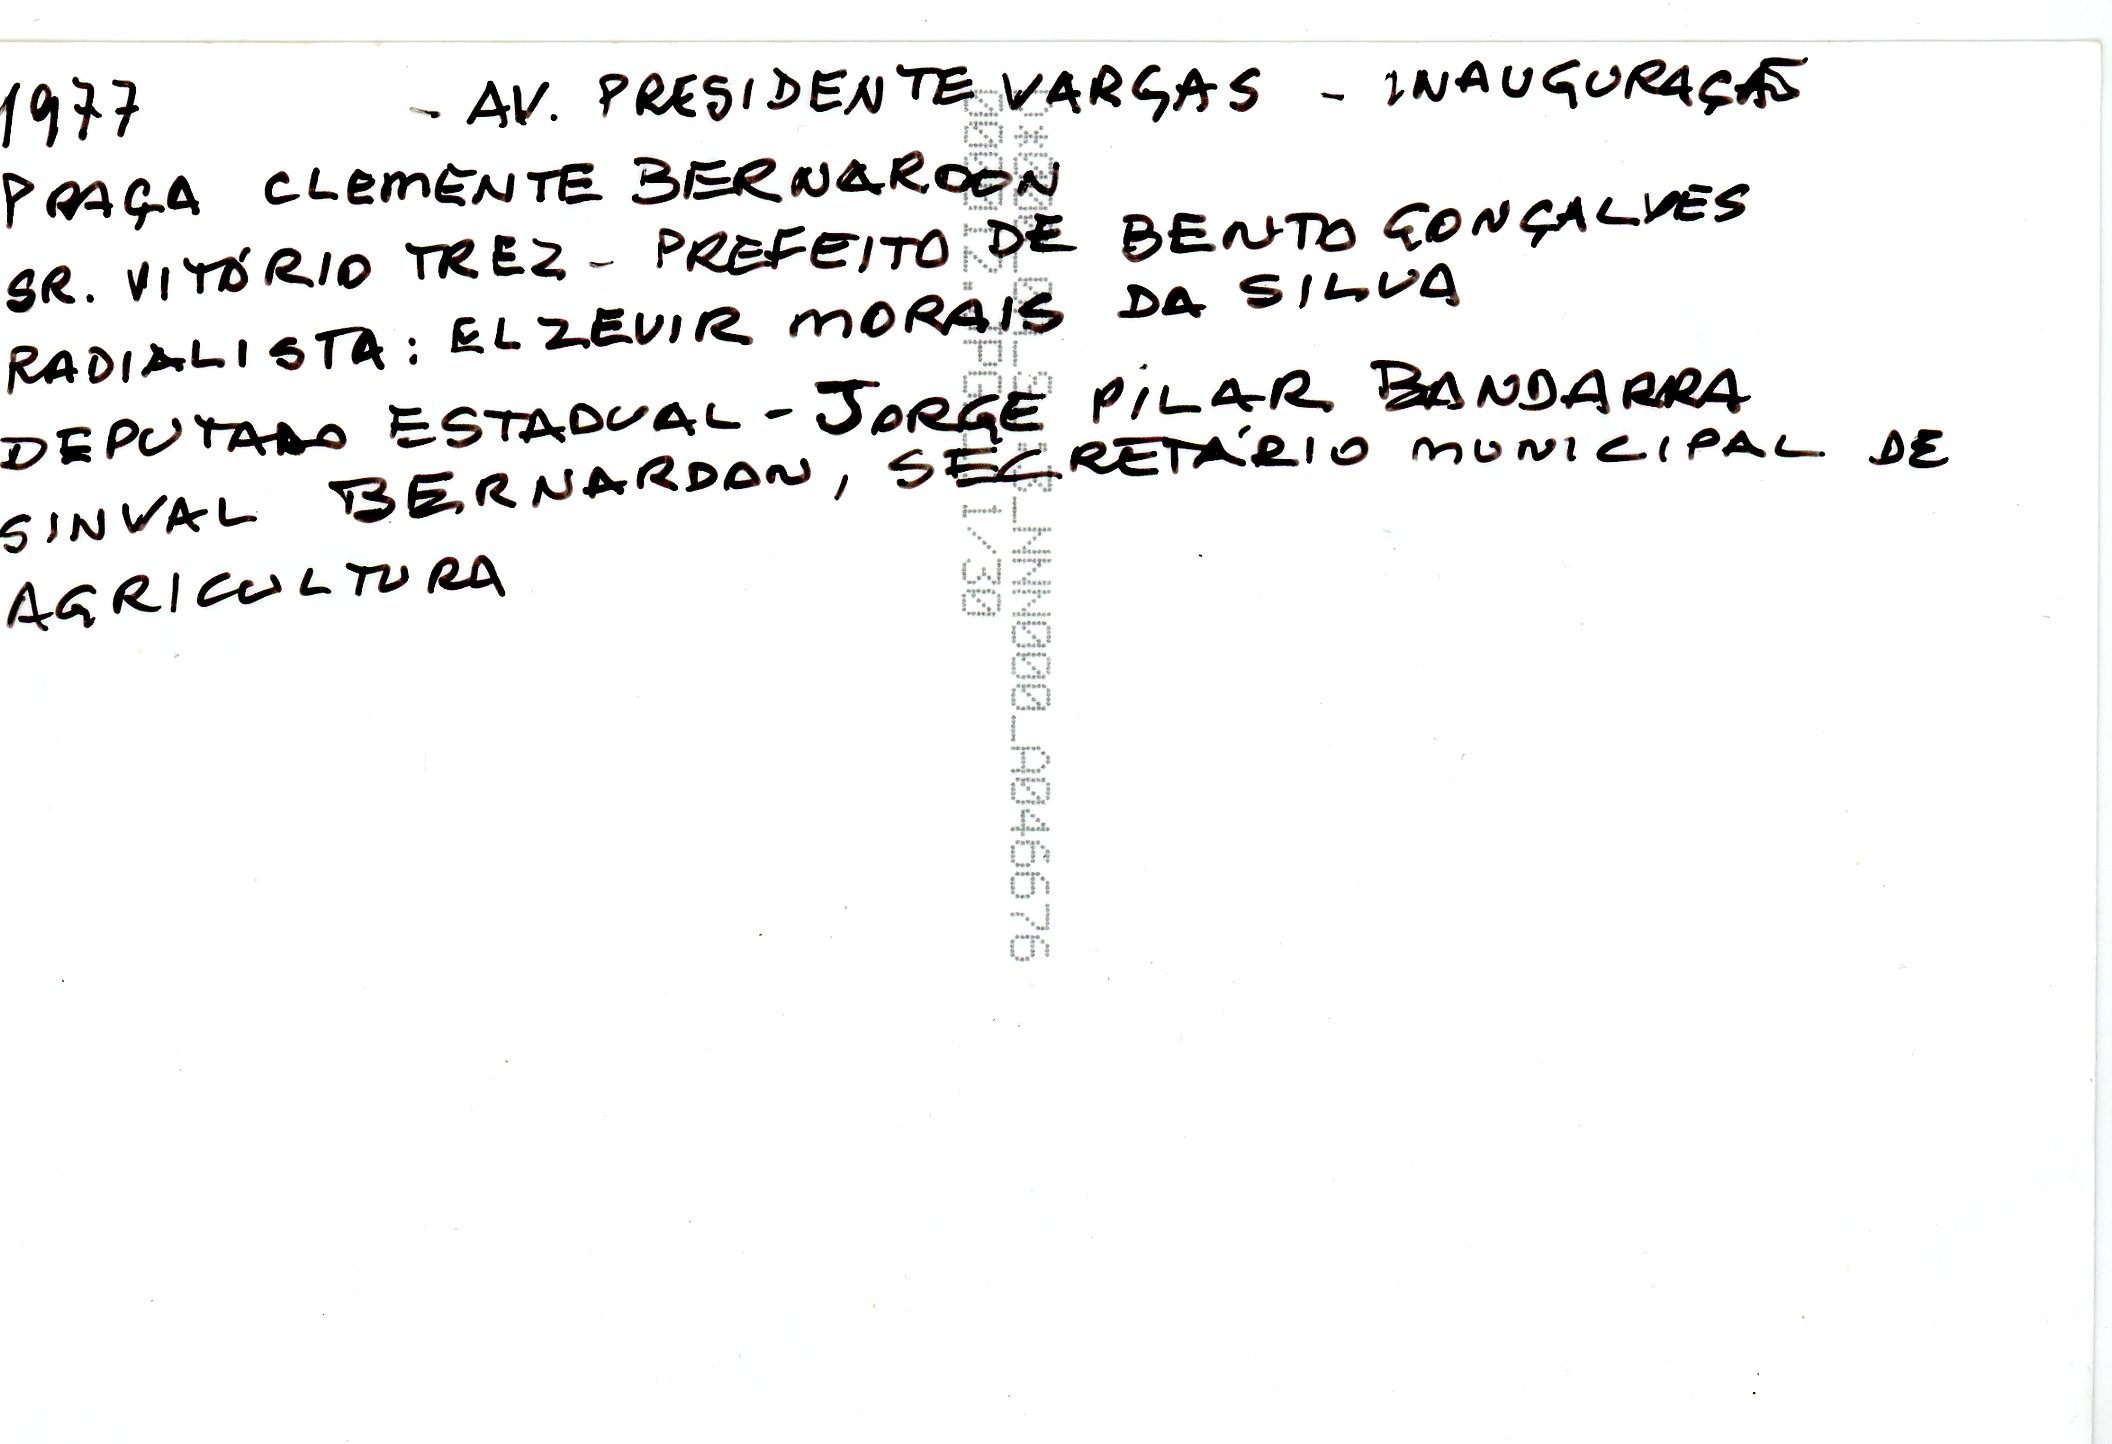 1977 - AV. PRESIDENTE VARGAS - INAUGURAÇÃO
PRAÇA CLEMENTE BERNARDON
SR. VITÓRIO TREZ - PREFEITO DE BENTO GONÇALVES
RADIALISTA: ELZEVIR MORAIS DA SILVA
DEPUTADO ESTADUAL - JORGE PILAR BANDARRA
SINVAL BERNARDON, SECRETÁRIO MUNICIPAL DE
AGRICULTURA